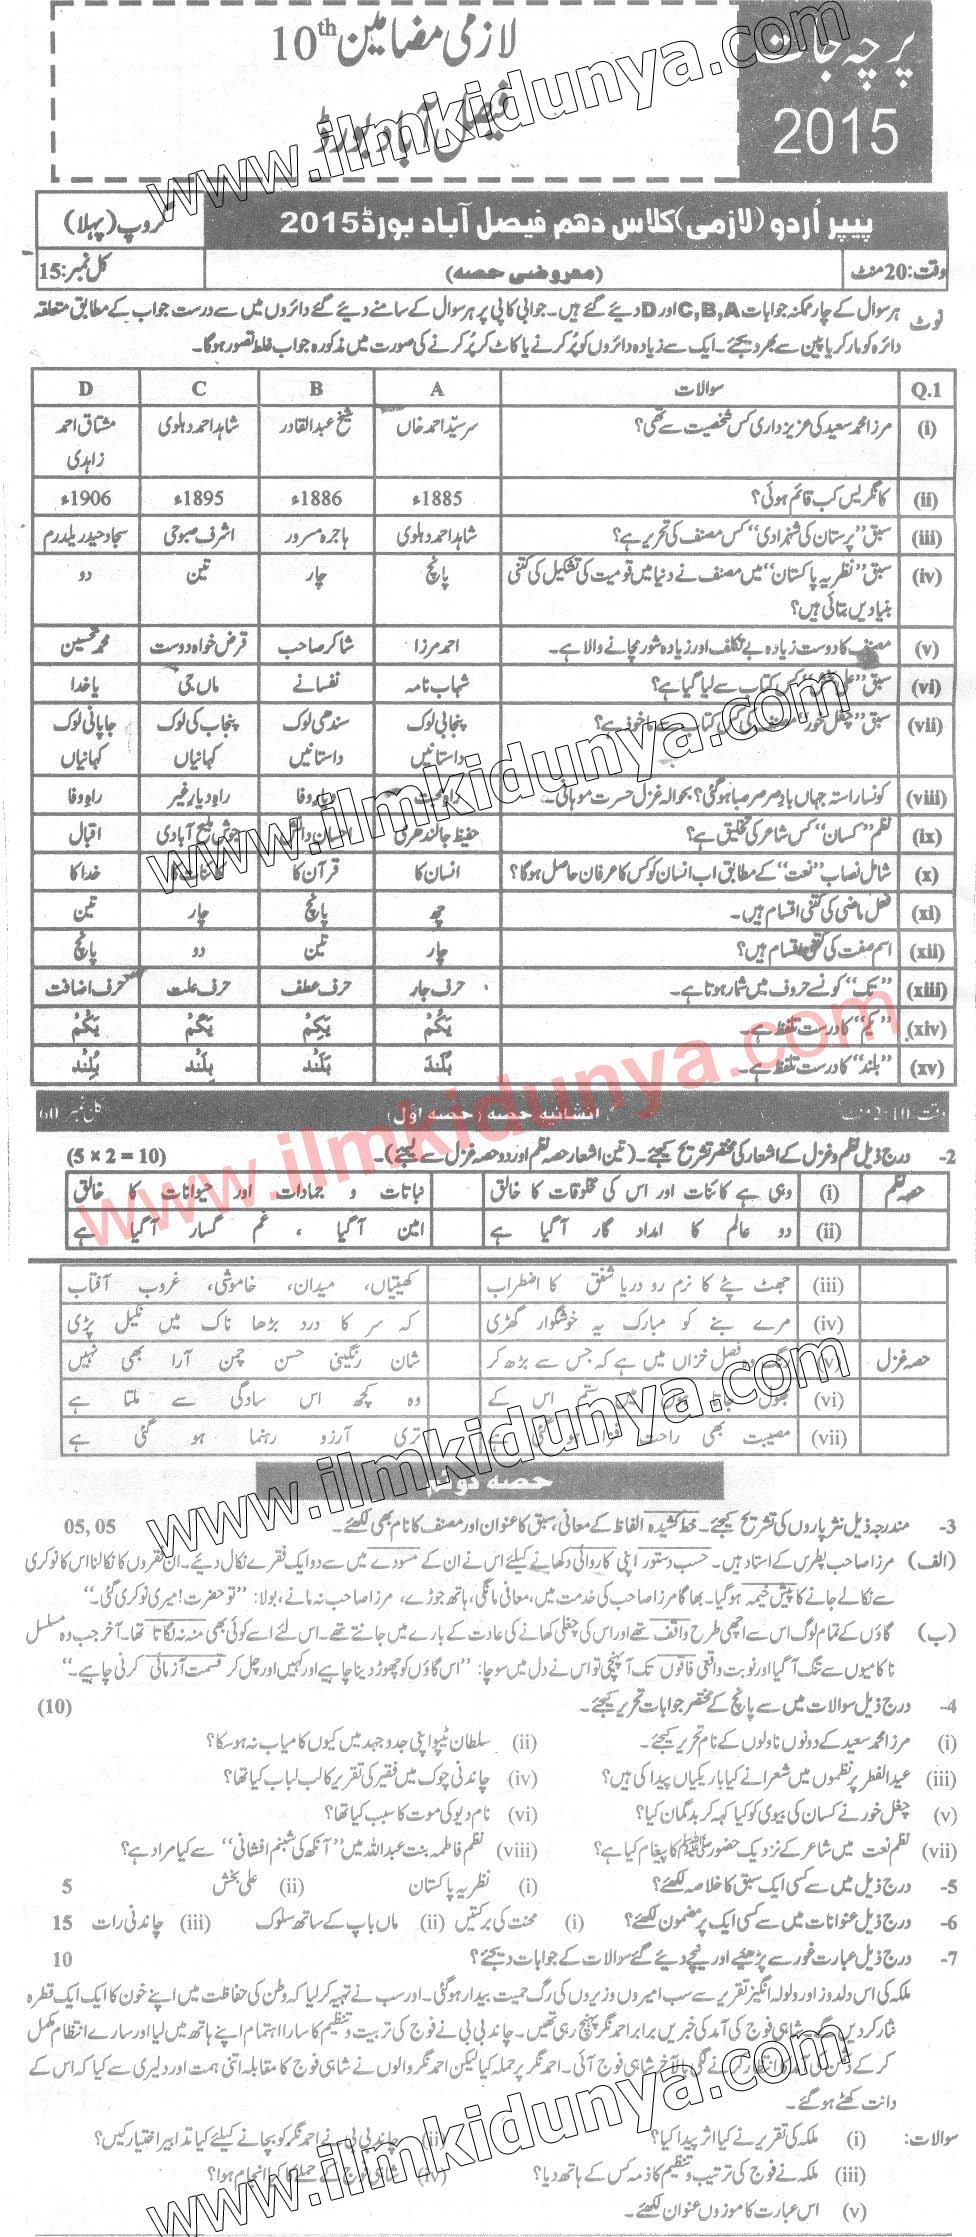 پرچہ جات
2015
لازمی مضامین 10th
فیصل آباد بورڈ
www.ilmkidunya.com
پیپر اُردو (لازمی) کلاس دھم فیصل آباد بورڈ 2015 گروپ (پہلا)
وقت: 20 منٹ (معروضی حصہ) کل نمبر: 15
نوٹ ہر سوال کے چار ممکنہ جوابات C,B,A اور D دیئے گئے ہیں۔ جوابی کاپی پر ہر سوال کے سامنے دیئے گئے دائروں میں سے درست جواب کے مطابق متعلقہ
دائرہ کو مارکر یا پین سے بھر دیجئے۔ ایک سے زیادہ دائروں کو پُر کرنے یا کاٹ کر پُر کرنے کی صورت میں مذکورہ جواب غلط تصور ہوگا۔
Q.1 سوالات A B C D
(i) مرزا محمد سعید کی عزیز داری کس شخصیت سے تھی؟ سرسیّد احمد خاں شیخ عبدالقادر شاہد احمد دہلوی مشتاق احمد
زاہدی
(ii) کانگریس کب قائم ہوئی؟ 1885ء 1886ء 1895ء 1906ء
(iii) سبق ’’پرستان کی شہزادی‘‘ کس مصنف کی تحریر ہے؟ شاہد احمد دہلوی ہاجرہ مسرور اشرف صبوحی سجاد حیدر یلدرم
(iv) سبق ’’نظریہ پاکستان‘‘ میں مصنف نے دنیا میں قومیت کی تشکیل کی کتنی پانچ چار تین دو
بنیادیں بتائی ہیں؟
(v) مصنف کا دوست زیادہ بے تکلف اور زیادہ شور مچانے والا ہے۔ احمد مرزا شاکر صاحب قرض خواہ دوست محمد تحسین
(vi) سبق ’’ کس کتاب سے لیا گیا ہے؟ شہاب نامہ نفسانے ماں جی یا خدا
(vii) سبق ’’چغل خور‘‘ مصنف کی کس کتاب سے ماخوذ ہے؟ پنجابی لوک سندھی لوک پنجاب کی لوک جاپانی لوک
داستانیں داستانیں کہانیاں کہانیاں
(viii) کونسا راستہ جہاں بادِ صرصر صبا ہوگئی؟ بحوالہ غزل حسرت موہانی۔ راہ وفا راہ دیار غیر راہ وفا
(ix) نظم ’’کسان‘‘ کس شاعر کی تخلیق ہے؟ حفیظ جالندھری احسان دانش جوش ملیح آبادی اقبال
(x) شامل نصاب ’’نعت‘‘ کے مطابق اب انسان کو کس کا عرفان حاصل ہوگا؟ انسان کا قرآن کا کائنات کا خدا کا
(xi) فعل ماضی کی کتنی اقسام ہیں۔ چھ پانچ چار تین
(xii) اسم صفت کی کتنی اقسام ہیں؟ چار تین دو پانچ
(xiii) ’’تک‘‘ کونسے حروف میں شمار ہوتا ہے۔ حرف جار حرف عطف حرف علت حرف اضافت
(xiv) ’’یکم‘‘ کا درست تلفظ ہے۔
(xv) ’’بلند‘‘ کا درست تلفظ ہے۔
وقت 2:10 منٹ انشائیہ حصہ (حصہ اول) کل نمبر 60
2- درج ذیل نظم و غزل کے اشعار کی مختصر تشریح کیجئے۔ (تین اشعار حصہ نظم اور دو حصہ غزل سے لیجئے)۔ (5 × 2 = 10)
حصہ نظم (i) وہی ہے کائنات اور اس کی مخلوقات کا خالق نباتات و جمادات اور حیوانات کا خالق
(ii) دو عالم کا امداد گار آ گیا ہے امین آ گیا ، غم گسار آ گیا ہے
(iii) جھٹ پٹے کا نرم رو دریا شفق کا اضطراب کھیتیاں، میدان، خاموشی، غروب آفتاب
(iv) مرے بنے کو مبارک یہ خوشگوار گھڑی کہ سر کا درد بڑھا ناک میں نکیل پڑی
حصہ غزل (v) فصل خزاں میں ہے کہ جس سے بڑھ کر شان رنگینی حسن چمن آرا بھی نہیں
(vi) بھول جاتا ہوں میں ستم اس کے وہ کچھ اس سادگی سے ملتا ہے
(vii) مصیبت بھی راحت فزا ہو گئی ہے تری آرزو رہنما ہو گئی ہے
حصہ دوئم
3- مندرجہ ذیل نثر پاروں کی تشریح کیجئے۔ خط کشیدہ الفاظ کے معانی، سبق کا عنوان اور مصنف کا نام بھی لکھئے۔ 05, 05
(الف) مرزا صاحب پطرس کے استاد ہیں۔ حسب دستور اپنی کاروائی دکھانے کیلئے اس نے ان کے مسودے میں سے دو ایک فقرے نکال دیئے۔ ان فقروں کا نکالنا اس کا نوکری
سے نکالے جانے کا پیش خیمہ ہو گیا۔ بھاگا مرزا صاحب کی خدمت میں، معافی مانگی، ہاتھ جوڑے، مرزا صاحب نہ مانے، بولا: ’’تو حضرت! میری نوکری گئی‘‘
(ب) گاؤں کے تمام لوگ اس سے اچھی طرح واقف تھے اور اس کی چغلی کھانے کی عادت کے بارے میں جانتے تھے۔ اس لئے اسے کوئی بھی منہ نہ لگاتا تھا۔ آخر جب وہ مسلسل
ناکامیوں سے تنگ آ گیا اور نوبت واقعی فاقوں تک آ پہنچی تو اس نے دل میں سوچا: ’’اس گاؤں کو چھوڑ دینا چاہیے اور کہیں اور چل کر قسمت آزمائی کرنی چاہیے۔‘‘
4- درج ذیل سوالات میں سے پانچ کے مختصر جوابات تحریر کیجئے۔ (10)
(i) مرزا محمد سعید کے دونوں ناولوں کے نام تحریر کیجئے۔ (ii) سلطان ٹیپو اپنی جدوجہد میں کیوں کامیاب نہ ہوسکا؟
(iii) عید الفطر پر نظموں میں شعرا نے کیا باریکیاں پیدا کی ہیں؟ (iv) چاندنی چوک میں فقیر کی تقریر کا لب لباب کیا تھا؟
(v) چغل خور نے کسان کی بیوی کو کیا کہہ کر بدگمان کیا؟ (vi) نام دیو کی موت کا سبب کیا تھا؟
(vii) نظم نعت میں شاعر کے نزدیک حضورﷺ کا پیغام کیا ہے؟ (viii) نظم فاطمہ بنت عبداللہ میں ’’آنکھ کی شبنم افشانی‘‘ سے کیا مراد ہے؟
5- درج ذیل میں سے کسی ایک سبق کا خلاصہ لکھئے؟ (i) نظریہ پاکستان (ii) علی بخش 5
6- درج ذیل عنوانات میں سے کسی ایک پر مضمون لکھئے؟ (i) محنت کی برکتیں (ii) ماں باپ کے ساتھ سلوک (iii) چاندنی رات 15
7- درج ذیل عبارت غور سے پڑھئے اور نیچے دیئے گئے سوالات کے جوابات دیجئے؟ 10
ملکہ کی اس دلدوز اور ولولہ انگیز تقریر سے سب امیروں وزیروں کی رگ حمیت بیدار ہوگئی۔ اور سب نے تہیہ کر لیا کہ وطن کی حفاظت میں اپنے خون کا ایک ایک قطرہ
نثار کردیں گے۔ شاہی فوج کی آمد کی خبریں برابر احمد نگر پہنچ رہی تھیں۔ چاند بی بی نے فوج کی تربیت و تنظیم کا سارا اہتمام اپنے ہاتھ میں لیا اور سارے انتظام مکمل
کر کے دشمن کی آمد کا انتظار کرنے لگی بالآخر شاہی فوج آئی۔ احمد نگر پر حملہ کیا لیکن احمد نگر والوں نے شاہی فوج کا مقابلہ اتنی ہمت اور دلیری سے کیا کہ اس کے
دانت کھٹے ہو گئے۔
سوالات: (i) ملکہ کی تقریر نے کیا اثر پیدا کیا؟ (ii) چاند بی بی نے احمد نگر کو بچانے کیلئے کیا تدابیر اختیار کیں؟
(iii) ملکہ نے فوج کی ترتیب و تنظیم کا ذمہ کس کے ہاتھ دیا؟ (iv) شاہی فوج کے حملے کا کیا انجام ہوا؟
(v) اس عبارت کا موزوں عنوان لکھئے۔